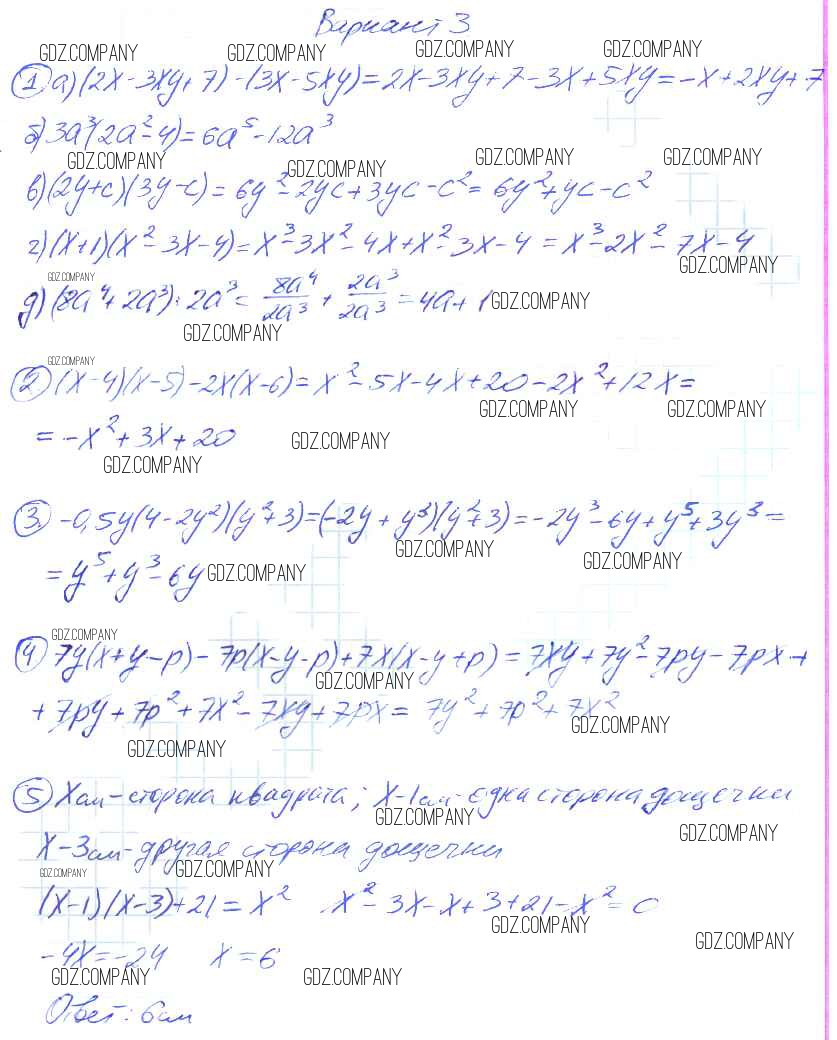 Вариант 3
GDZ.COMPANY GDZ.COMPANY GDZ.COMPANY GDZ.COMPANY
① а) (2x - 3xy + 7) - (3x - 5xy) = 2x - 3xy + 7 - 3x + 5xy = -x + 2xy + 7
б) 3a³(2a² - 4) = 6a⁵ - 12a³
GDZ.COMPANY GDZ.COMPANY GDZ.COMPANY GDZ.COMPANY
в) (2y + c)(3y - c) = 6y² - 2yc + 3yc - c² = 6y² + yc - c²
г) (x + 1)(x² - 3x - 4) = x³ - 3x² - 4x + x² - 3x - 4 = x³ - 2x² - 7x - 4
GDZ.COMPANY GDZ.COMPANY
д) (8a⁴ + 2a³) : 2a³ = 8a⁴/2a³ + 2a³/2a³ = 4a + 1 GDZ.COMPANY
GDZ.COMPANY
GDZ.COMPANY
② (x - 4)(x - 5) - 2x(x - 6) = x² - 5x - 4x + 20 - 2x² + 12x =
GDZ.COMPANY GDZ.COMPANY
= -x² + 3x + 20 GDZ.COMPANY
GDZ.COMPANY
③. -0,5y(4 - 2y²)(y² + 3) = (-2y + y³)(y² + 3) = -2y³ - 6y + y⁵ + 3y³ =
GDZ.COMPANY GDZ.COMPANY
= y⁵ + y³ - 6y GDZ.COMPANY
GDZ.COMPANY
④ 7y(x + y - p) - 7p(x - y - p) + 7x(x - y + p) = 7xy + 7y² - 7py - 7px +
GDZ.COMPANY
+ 7py + 7p² + 7x² - 7xy + 7px = 7y² + 7p² + 7x²
GDZ.COMPANY GDZ.COMPANY
⑤ x см - сторона квадрата; x - 1 см - одна сторона дощечки
GDZ.COMPANY GDZ.COMPANY
x - 3 см - другая сторона дощечки
GDZ.COMPANY GDZ.COMPANY
(x - 1)(x - 3) + 21 = x² x² - 3x - x + 3 + 21 - x² = 0
GDZ.COMPANY GDZ.COMPANY
-4x = -24 x = 6
GDZ.COMPANY GDZ.COMPANY
Ответ: 6 см